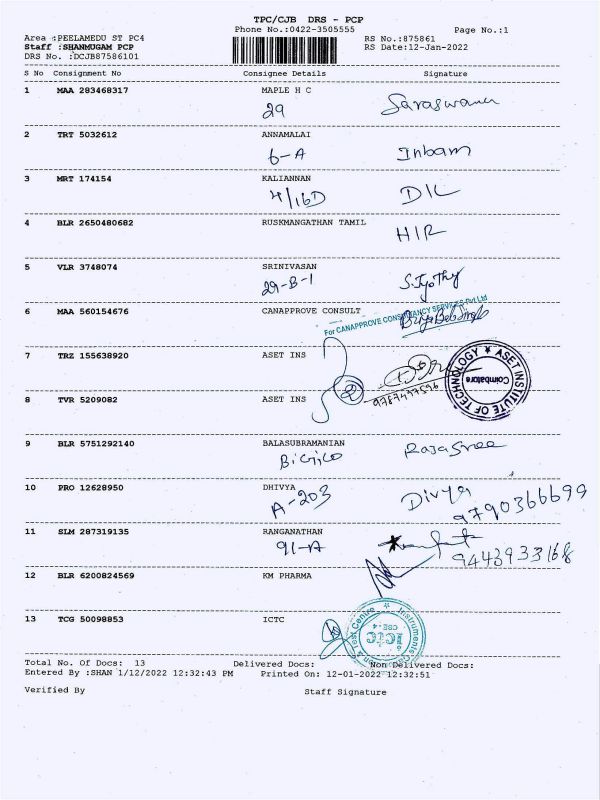 TPC/CJB DRS - PCP
Phone No.:0422-3505555 Page No.:1
Area :PEELAMEDU ST PC4 RS No.:875861
Staff :SHANMUGAM PCP RS Date:12-Jan-2022
DRS No. :DCJB87586101
S No Consignment No Consignee Details Signature
1 MAA 283468317 MAPLE H C
29 Saraswana
2 TRT 5032612 ANNAMALAI
6-A Inbam
3 MRT 174154 KALIANNAN
4/16D DIL
4 BLR 2650480682 RUSKMANGATHAN TAMIL
HIR
5 VLR 3748074 SRINIVASAN
29-B-1 S.Jyothy
6 MAA 560154676 CANAPPROVE CONSULT
For CANAPPROVE CONSULTANCY SERVICES Pvt Ltd
7 TRZ 155638920 ASET INS
ASET INSTITUTE OF TECHNOLOGY
Coimbatore
8 TVR 5209082 ASET INS
9 BLR 5751292140 BALASUBRAMANIAN
Rajasree
10 PRO 12628950 DHIVYA
A-203 Divya
9790366699
11 SLM 287319135 RANGANATHAN
91-A
9443933168
12 BLR 6200824569 KM PHARMA
13 TCG 50098853 ICTC
ictc
CBE-4
Total No. Of Docs: 13 Delivered Docs: Non Delivered Docs:
Entered By :SHAN 1/12/2022 12:32:43 PM Printed On: 12-01-2022 12:32:51
Verified By Staff Signature